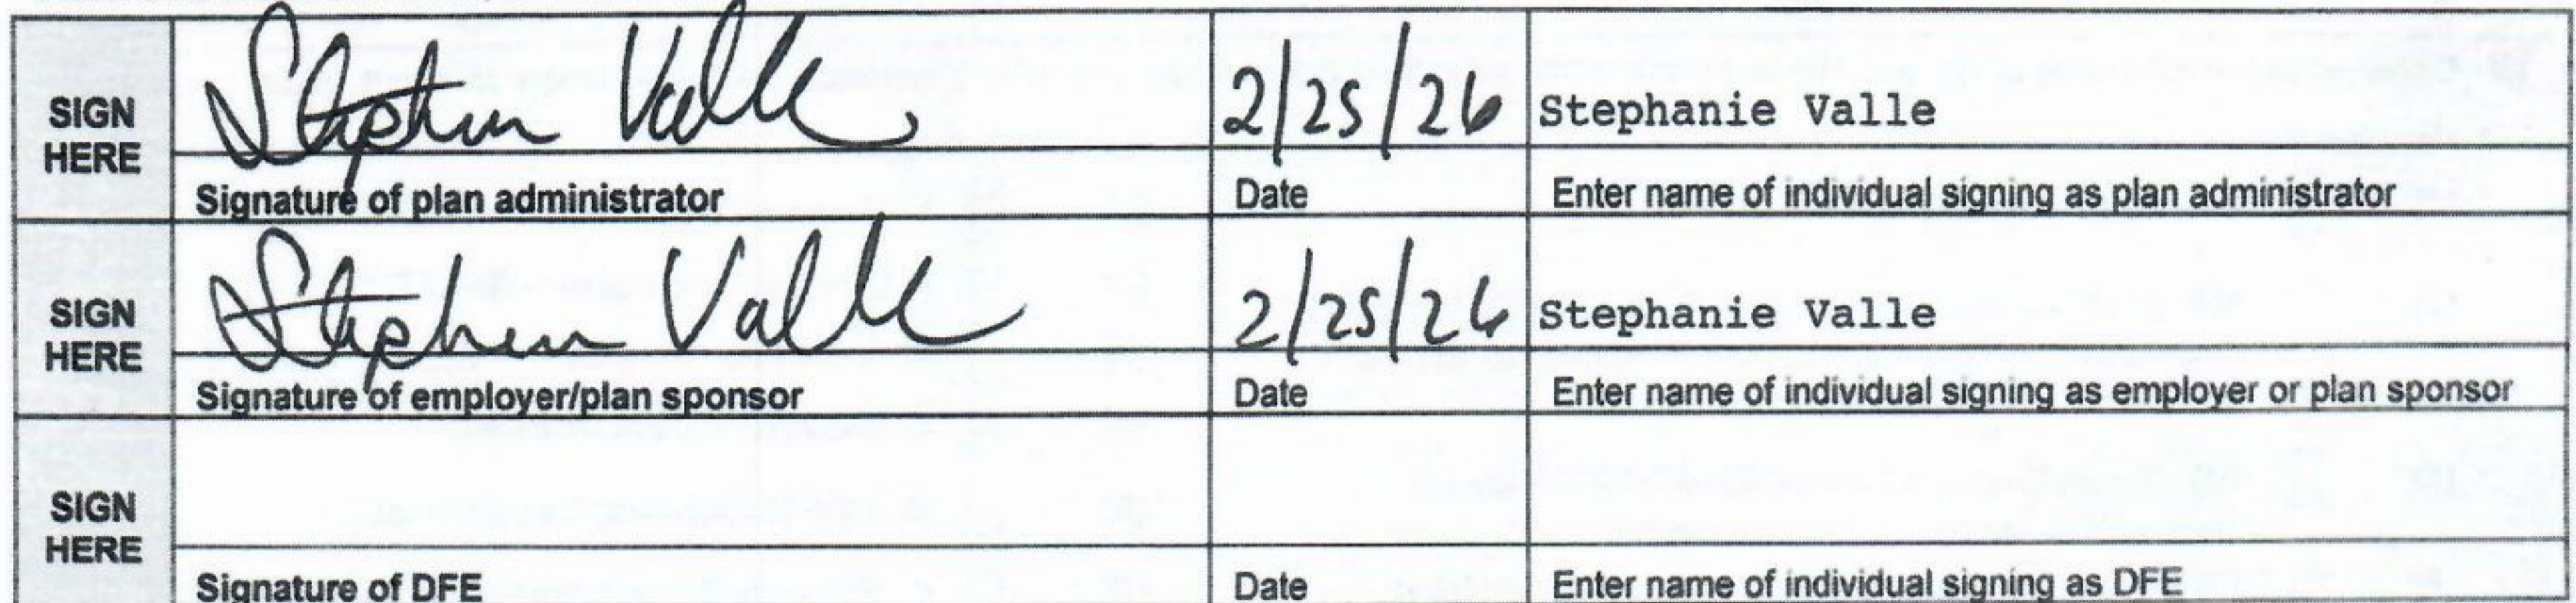 SIGN HERE
Stephanie Valle 2/25/26 Stephanie Valle
Signature of plan administrator Date Enter name of individual signing as plan administrator
SIGN HERE
Stephanie Valle 2/25/26 Stephanie Valle
Signature of employer/plan sponsor Date Enter name of individual signing as employer or plan sponsor
SIGN HERE
Signature of DFE Date Enter name of individual signing as DFE